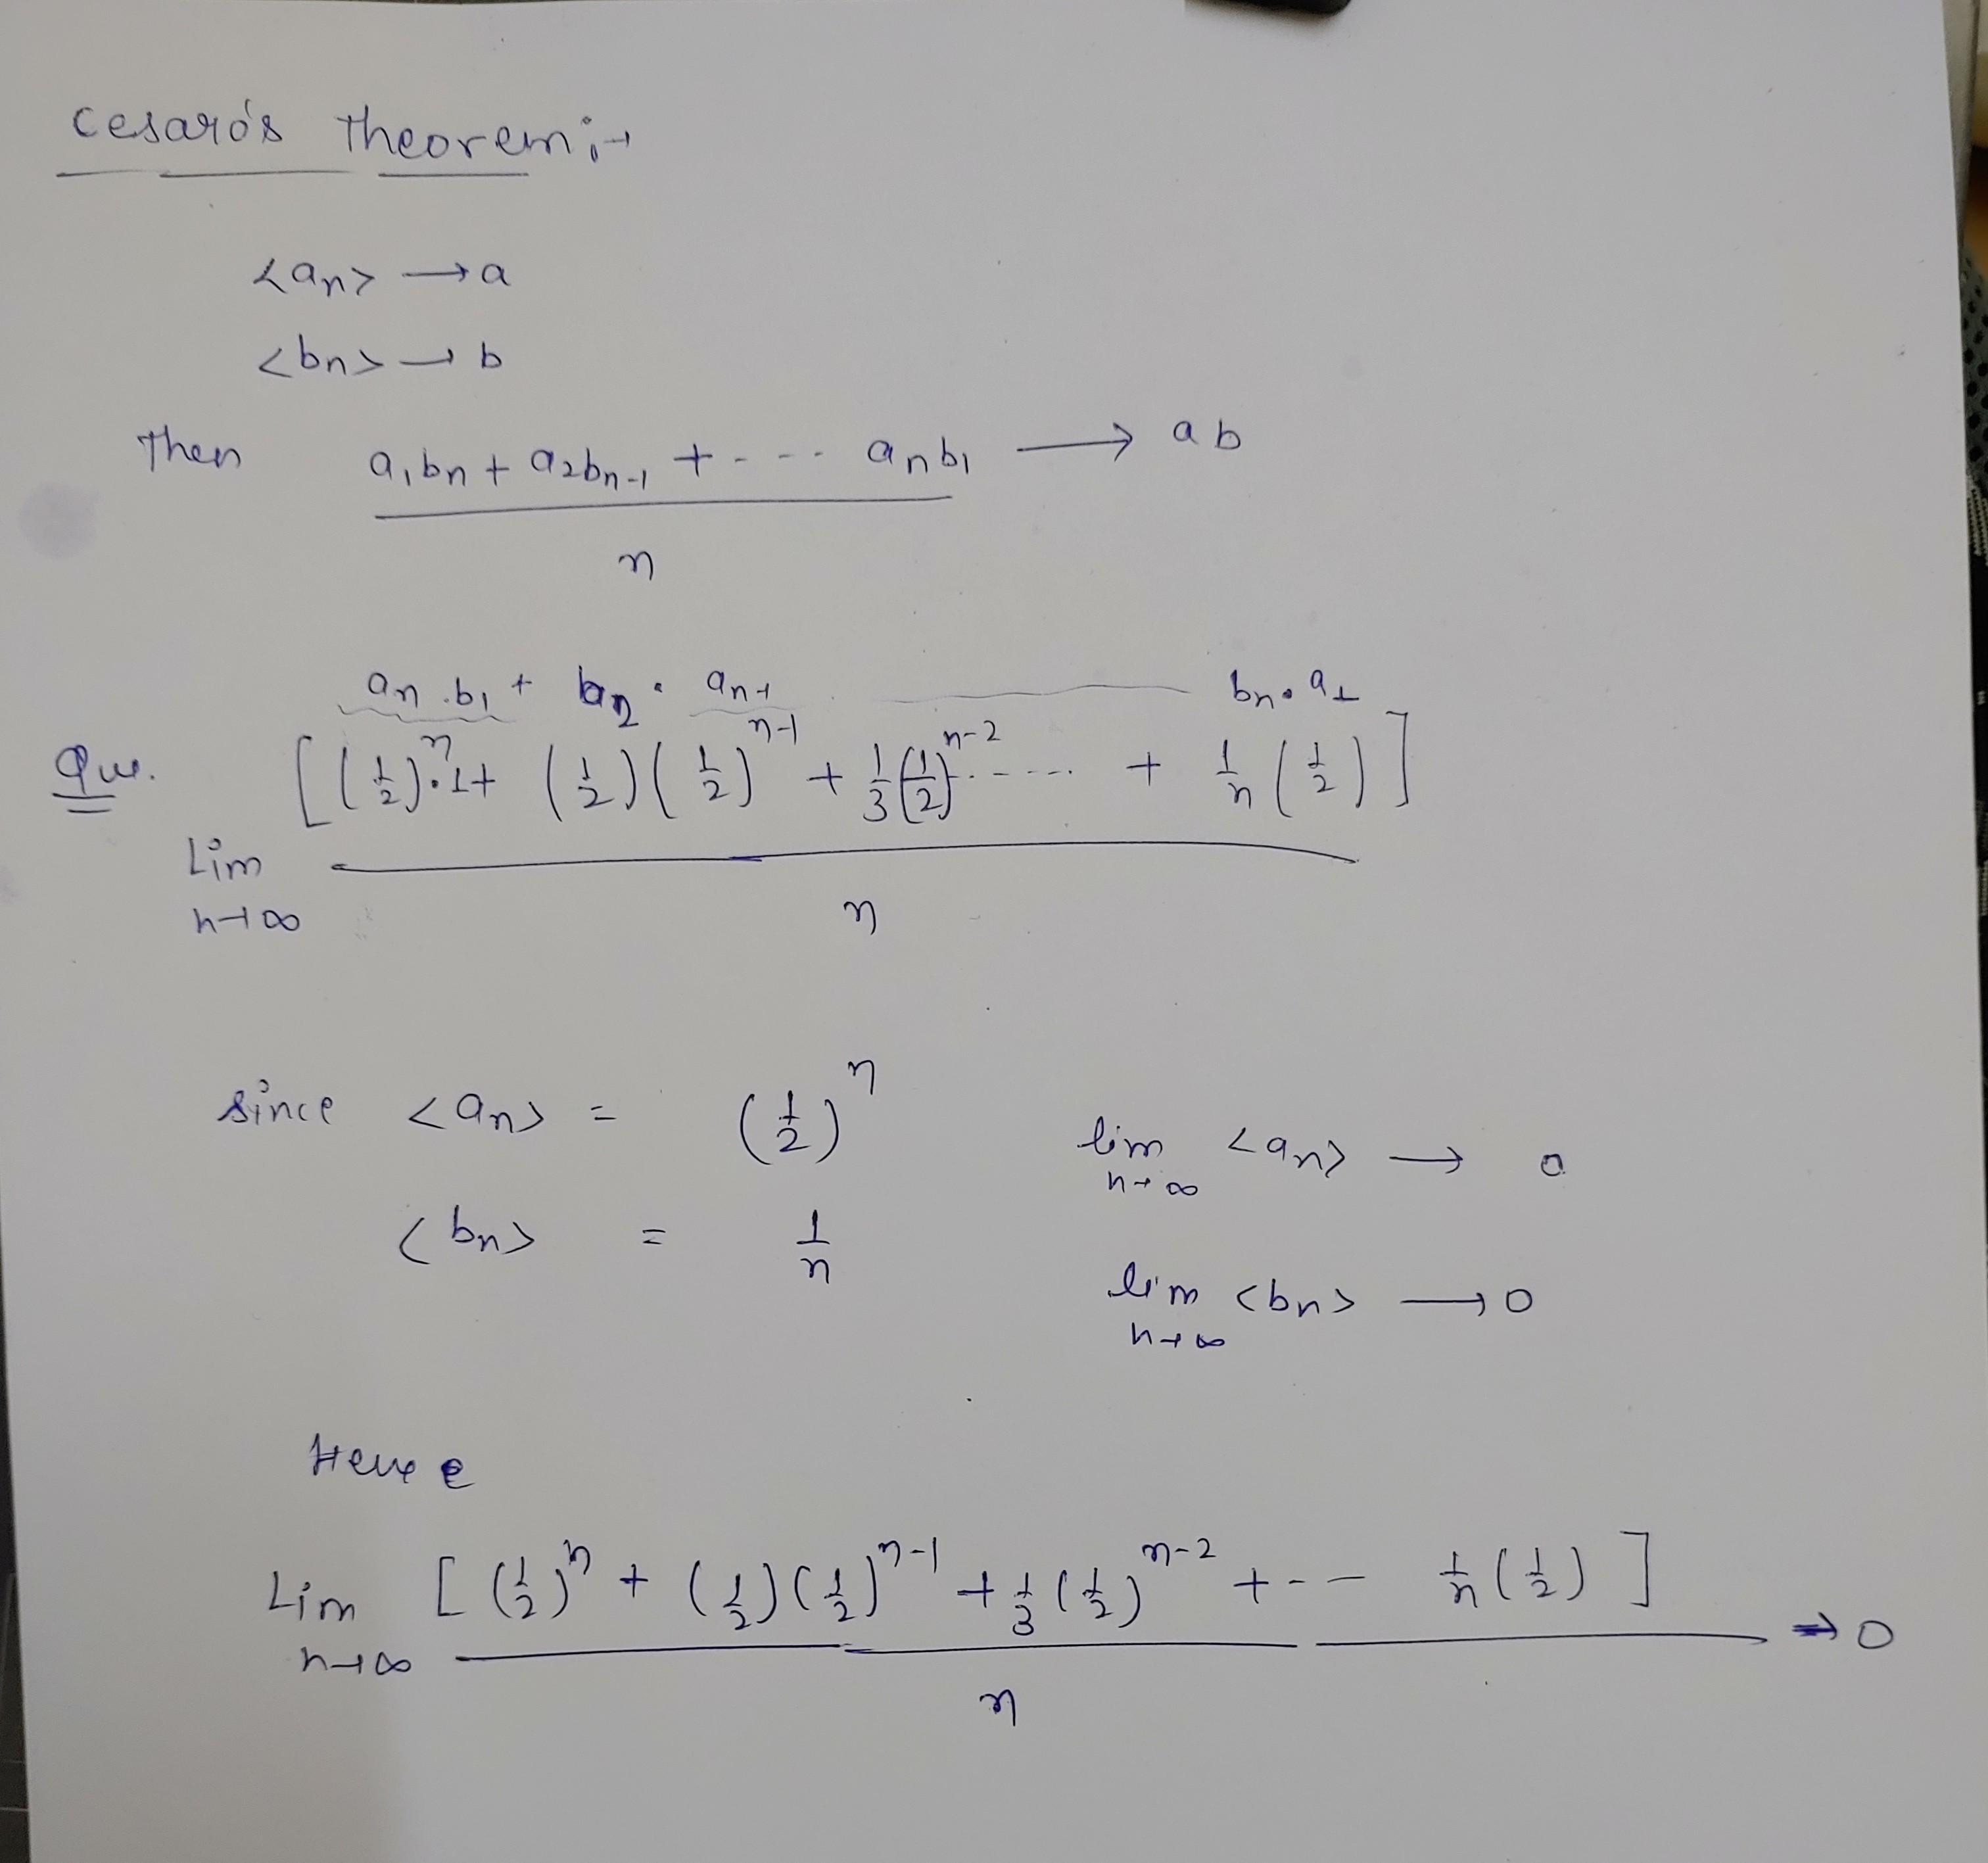 Cesaro's Theorem :→
<an> → a
<bn> → b
Then a₁bn + a₂bn-₁ + - - - - anb₁ ⟶ ab
n
an . b₁ + b₂ . an-1 bn . a₁
Que. [(1/2)ⁿ.1 + (1/2)(1/2)ⁿ⁻¹ + 1/3(1/2)ⁿ⁻² - - - - - + 1/n (1/2)]
Lim
n→∞ n
Since <an> = (1/2)ⁿ lim <an> → 0
n→∞
<bn> = 1/n lim <bn> → 0
n→∞
Lim [(1/2)ⁿ + (1/2)(1/2)ⁿ⁻¹ + 1/3(1/2)ⁿ⁻² + - - - 1/n (1/2)] ⇒ 0
n→∞ n